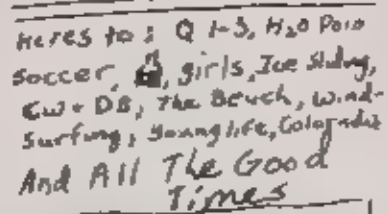 Heres to: Q 1-3, H2O Polo
Soccer, girls, Ice Skating,
CW + DB, The Beach, Wind-
Surfing, Younglife, Colorado
And All The Good
Times